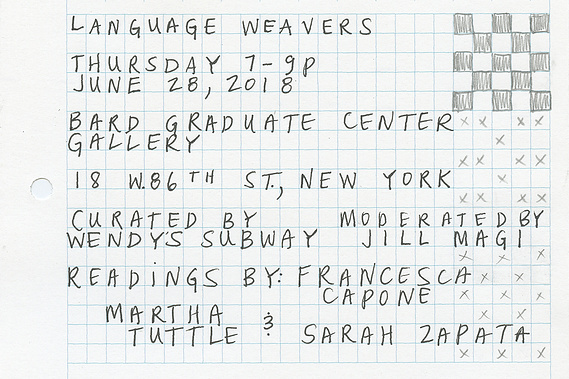 LANGUAGE WEAVERS
THURSDAY 7-9P
JUNE 28, 2018
BARD GRADUATE CENTER
GALLERY
18 W.86TH ST., NEW YORK
CURATED BY MODERATED BY
WENDY'S SUBWAY JILL MAGI
READINGS BY: FRANCESCA
CAPONE
MARTHA &
TUTTLE SARAH ZAPATA